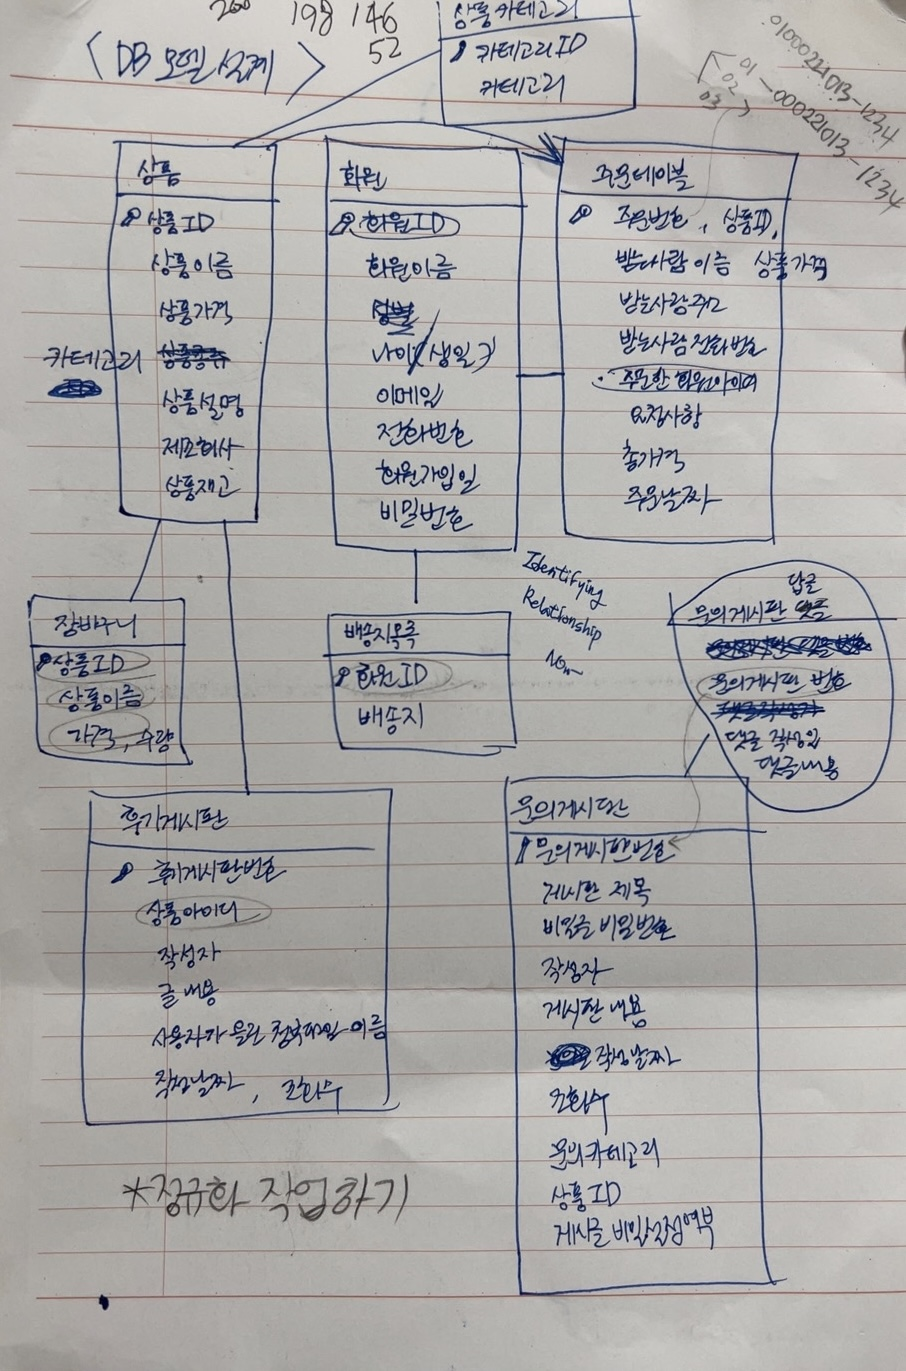 200 198 146
52
< DB 모델 설계 >
상품 카테고리
카테고리 ID
카테고리
01000221013-1234
01 - 000221013 - 1234
02
03
상품
상품ID
상품이름
상품가격
카테고리
상품설명
제조회사
상품재고
회원
회원ID
회원이름
나이(생일 ?)
이메일
전화번호
회원가입일
비밀번호
주문테이블
주문번호, 상품ID,
받는사람 이름 상품가격
받는사람주소
받는사람 전화번호
주문한 회원아이디
요청사항
총가격
주문날짜
장바구니
상품ID
상품이름
가격, 수량
배송지목록
회원ID
배송지
Identifying
Relationship
Non-
답글
문의게시판 댓글
문의게시판 번호
댓글 작성일
댓글내용
후기게시판
후기게시판번호
상품아이디
작성자
글내용
사용자가 올린 첨부파일 이름
작성날짜, 조회수
문의게시판
문의게시판번호
게시판 제목
비밀글 비밀번호
작성자
게시판 내용
작성날짜
조회수
문의카테고리
상품ID
게시글 비밀설정여부
*정규화 작업하기